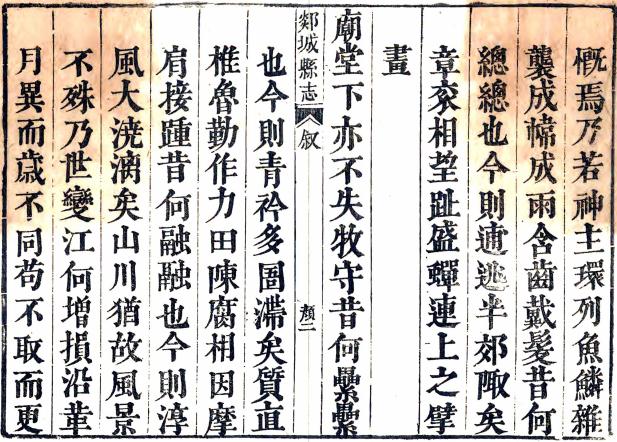 慨焉乃若神主環列魚鱗雜
襲成幃成雨含齒戴髮昔何
總總也今則逋逃半郊陬矣
章相望趾盛蟬連上之擘
畫
廟堂下亦不失牧守昔何纍纍
郯城縣志 敘 顏二
也今則青衿多滯矣質直
椎魯勤作力田陳腐相因摩
肩接踵昔何融融也今則淳
風大澆漓矣山川猶故風景
不殊乃世變江何增損沿革
月異而歲不同苟不取而更